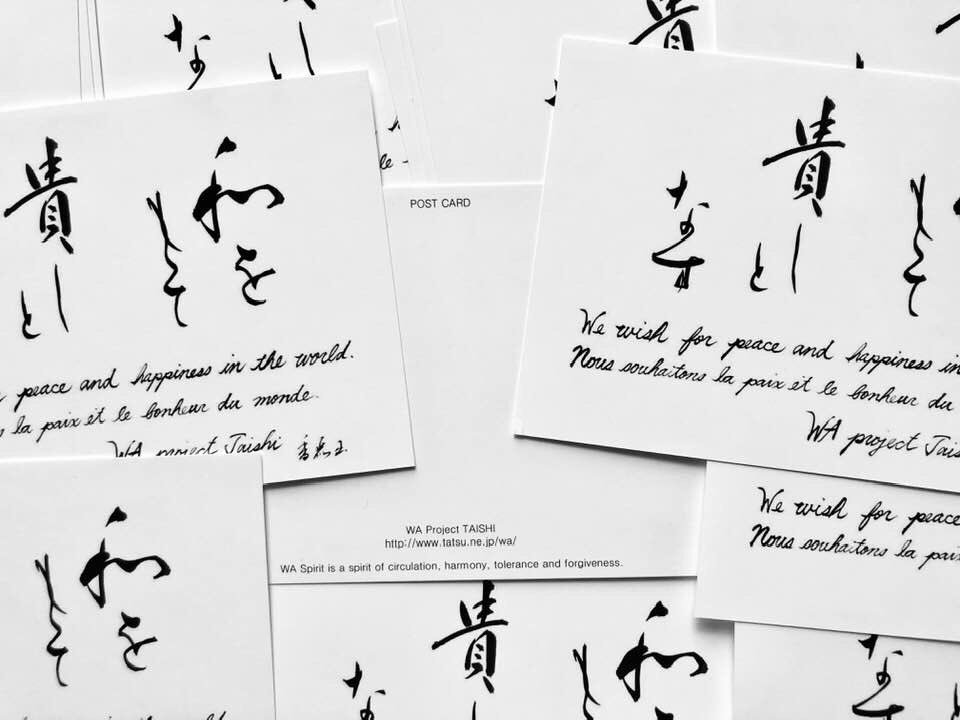 な
し
貴
和を
もって
貴し
と
peace and happiness in the world.
la paix et le bonheur du monde.
WA project Taishi
POST CARD
WA Project TAISHI
http://www.tatsu.ne.jp/wa/
WA Spirit is a spirit of circulation, harmony, tolerance and forgiveness.
もって
貴し
と
なす
We wish for peace and happiness in
Nous souhaitons la paix et le bonheur du
WA project Tais
We wish for peace
Nous souhaitons la paix
和を
もって
and happiness in the world
和
も
貴
な
なす